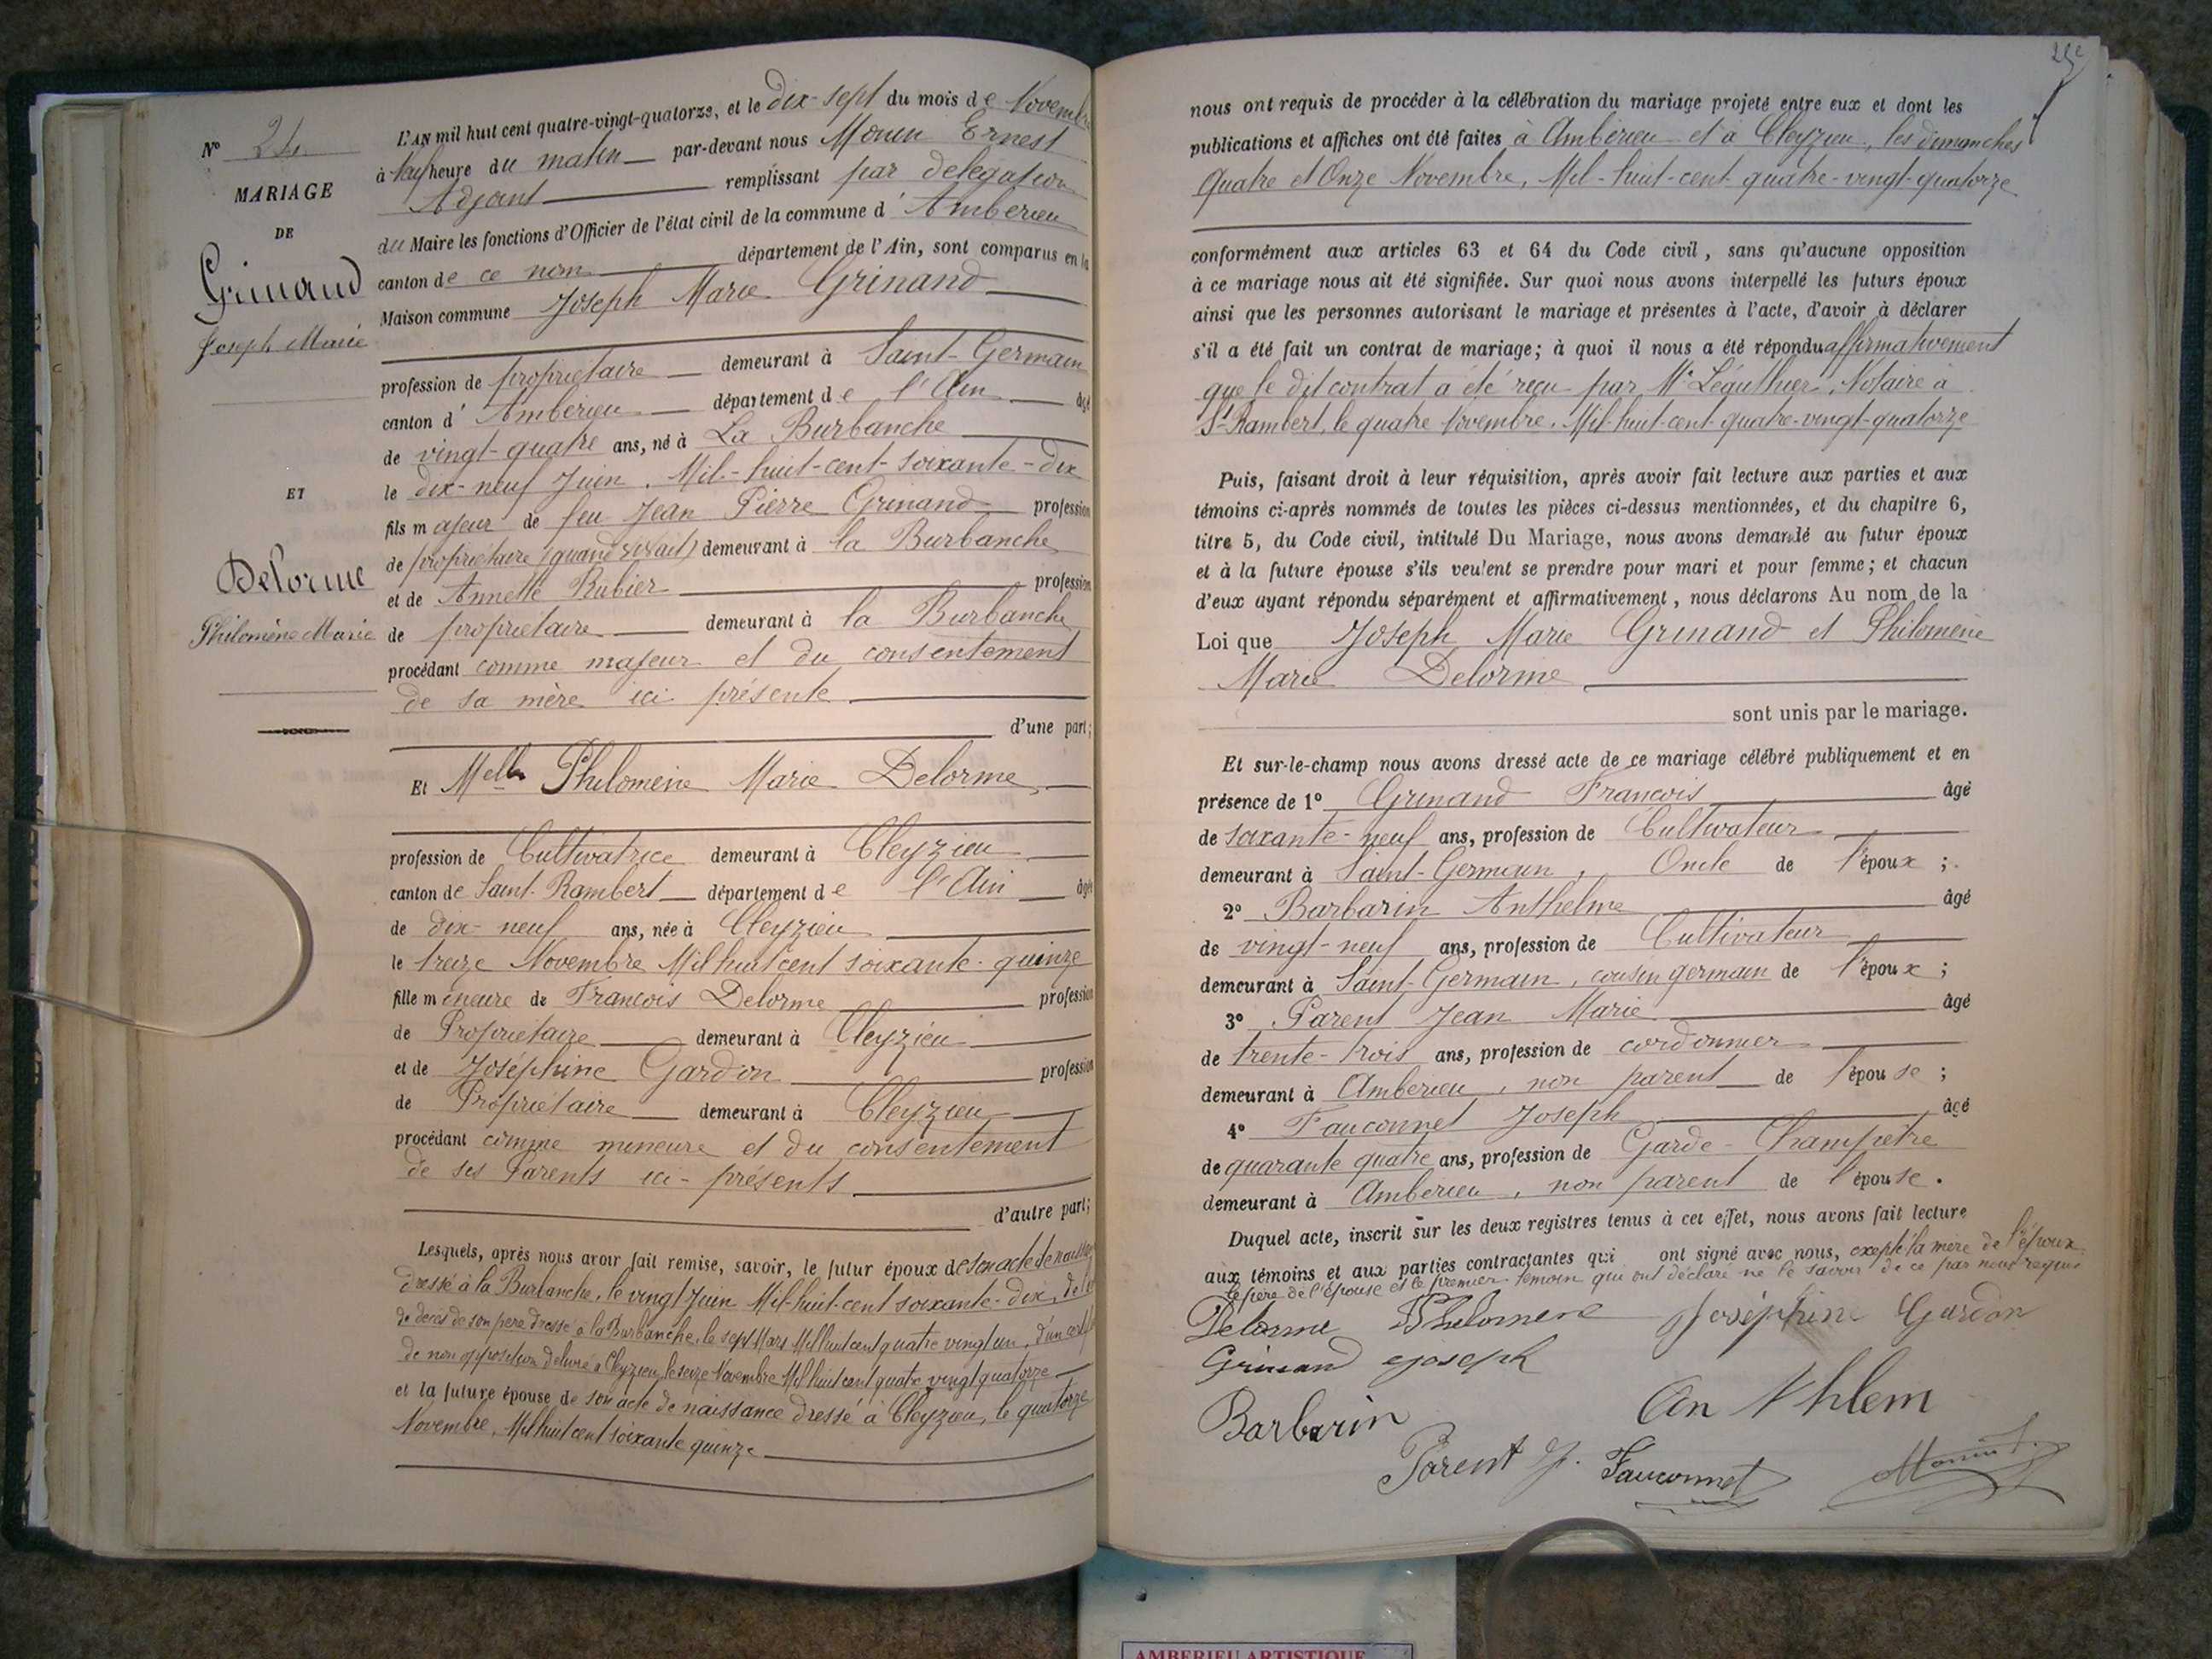 N° 24
MARIAGE
DE
Grinand
Joseph Marie
ET
Delorme
Philomène Marie
L'AN mil huit cent quatre-vingt-quatorze, et le dix-sept du mois de Novembre
à heure du matin par-devant nous Monin Ernest
Adjoint remplissant par délégation
du Maire les fonctions d'Officier de l'état civil de la commune d'Ambérieu
canton de ce nom département de l'Ain, sont comparus en la
Maison commune Joseph Marie Grinand
profession de propriétaire demeurant à Saint-Germain
canton d'Ambérieu département de l'Ain âgé
de vingt-quatre ans, né à La Burbanche
le dix-neuf Juin, Mil-huit-cent-soixante-dix
fils majeur de feu Jean Pierre Grinand profession
de propriétaire (quand vivait) demeurant à la Burbanche
et de Annette Rubier profession
de propriétaire demeurant à la Burbanche
procédant comme majeur et du consentement
de sa mère ici présente
d'une part;
Et Melle Philomène Marie Delorme
profession de Cultivatrice demeurant à Cleyzieu
canton de Saint-Rambert département de l'Ain âgée
de dix-neuf ans, née à Cleyzieu
le treize Novembre Mil huit cent soixante-quinze
fille mineure de François Delorme profession
de Propriétaire demeurant à Cleyzieu
et de Joséphine Gardon profession
de Propriétaire demeurant à Cleyzieu
procédant comme mineure et du consentement
de ses Parents ici-présents
d'autre part;
Lesquels, après nous avoir fait remise, savoir, le futur époux de son acte de
dressé à la Burbanche, le vingt Juin Mil-huit-cent soixante-dix,
de décès de son père dressé à la Burbanche, le sept Mars Mil huit cent quatre vingt un, d'un
de non opposition délivré à Cleyzieu, le seize Novembre Mil huit cent quatre vingt quatorze
et la future épouse de son acte de naissance dressé à Cleyzieu, le quatorze
Novembre, Mil huit cent soixante quinze
nous ont requis de procéder à la célébration du mariage projeté entre eux et dont les
publications et affiches ont été faites à Ambérieu et à Cleyzieu, les dimanches
Quatre et Onze Novembre, Mil-huit-cent-quatre-vingt-quatorze
conformément aux articles 63 et 64 du Code civil, sans qu'aucune opposition
à ce mariage nous ait été signifiée. Sur quoi nous avons interpellé les futurs époux
ainsi que les personnes autorisant le mariage et présentes à l'acte, d'avoir à déclarer
s'il a été fait un contrat de mariage; à quoi il nous a été répondu affirmativement
que le dit contrat a été reçu par Me Léguthier, Notaire à
St-Rambert, le quatre Novembre, Mil-huit-cent-quatre-vingt-quatorze
Puis, faisant droit à leur réquisition, après avoir fait lecture aux parties et aux
témoins ci-après nommés de toutes les pièces ci-dessus mentionnées, et du chapitre 6,
titre 5, du Code civil, intitulé Du Mariage, nous avons demandé au futur époux
et à la future épouse s'ils veulent se prendre pour mari et pour femme; et chacun
d'eux ayant répondu séparément et affirmativement, nous déclarons Au nom de la
Loi que Joseph Marie Grinand et Philomène
Marie Delorme
sont unis par le mariage.
Et sur-le-champ nous avons dressé acte de ce mariage célébré publiquement et en
présence de 1° Grinand François âgé
de soixante-neuf ans, profession de Cultivateur
demeurant à Saint-Germain, Oncle de l'époux;
2° Barbarin Anthelme âgé
de vingt-neuf ans, profession de Cultivateur
demeurant à Saint-Germain, cousin germain de l'époux;
3° Parent Jean Marie âgé
de trente-trois ans, profession de cordonnier
demeurant à Ambérieu, non parent de l'épouse;
4° Fauconnet Joseph âgé
de quarante quatre ans, profession de Garde-Champêtre
demeurant à Ambérieu, non parent de l'épouse.
Duquel acte, inscrit sur les deux registres tenus à cet effet, nous avons fait lecture
aux témoins et aux parties contractantes qui ont signé avec nous, excepté la mère de l'époux
le père de l'épouse et le premier témoin qui ont déclaré ne le savoir de ce par nous requis
Delorme Philomène Joséphine Gardon
Grinand Joseph
Barbarin An thlem
Parent J. Fauconnet Monin
AMBERIEU ARTISTIQUE